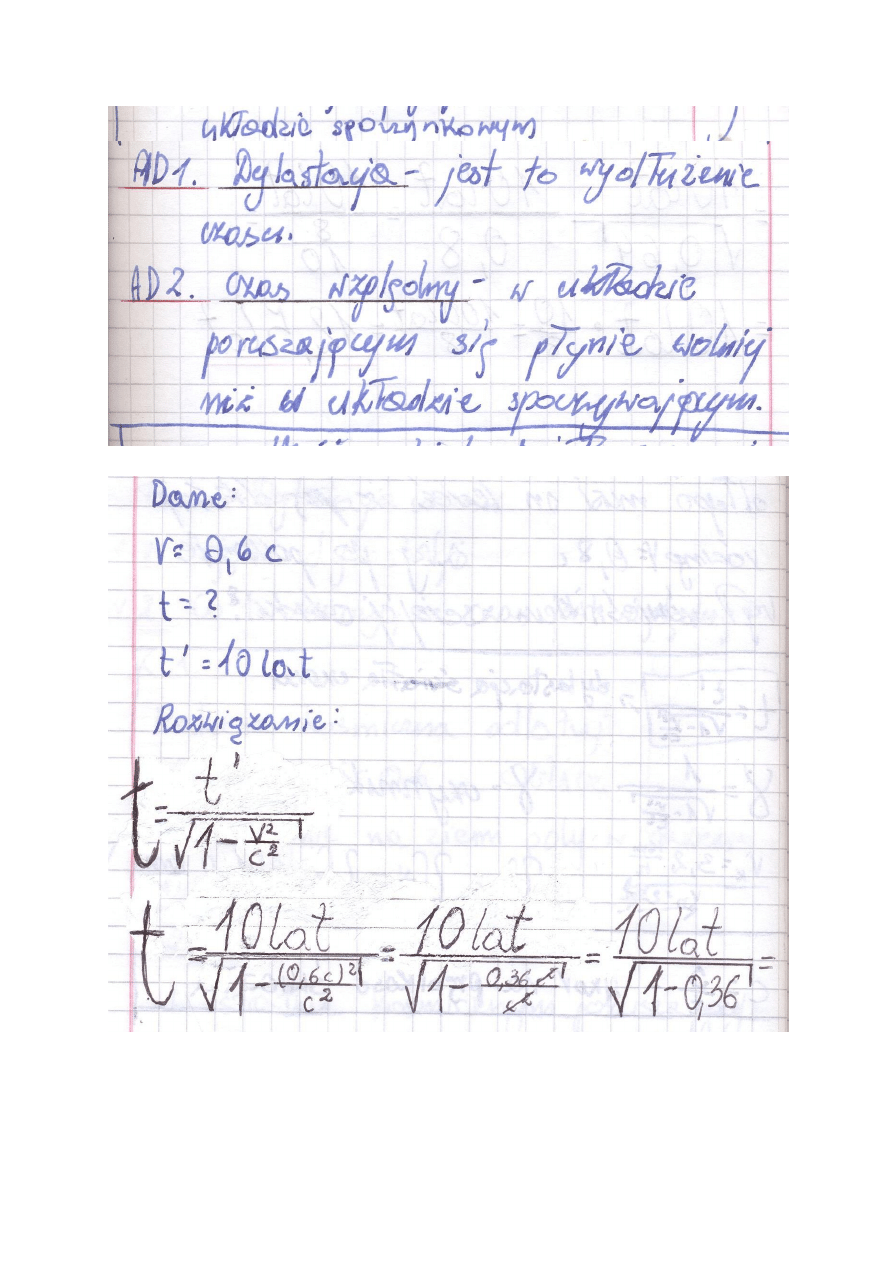 układzie spoczynkowym
AD1. Dylastacja - jest to wydłużenie
czasu.
AD2. Czas względny - w układzie
poruszającym się płynie wolniej
niż w układzie spoczywającym.
Dane:
V = 0,6 c
t = ?
t' = 10 lat
Rozwiązanie:
t = t' / √(1 - V²/c²)
t = 10 lat / √(1 - (0,6c)²/c²) = 10 lat / √(1 - 0,36 c²/c²) = 10 lat / √(1 - 0,36) =